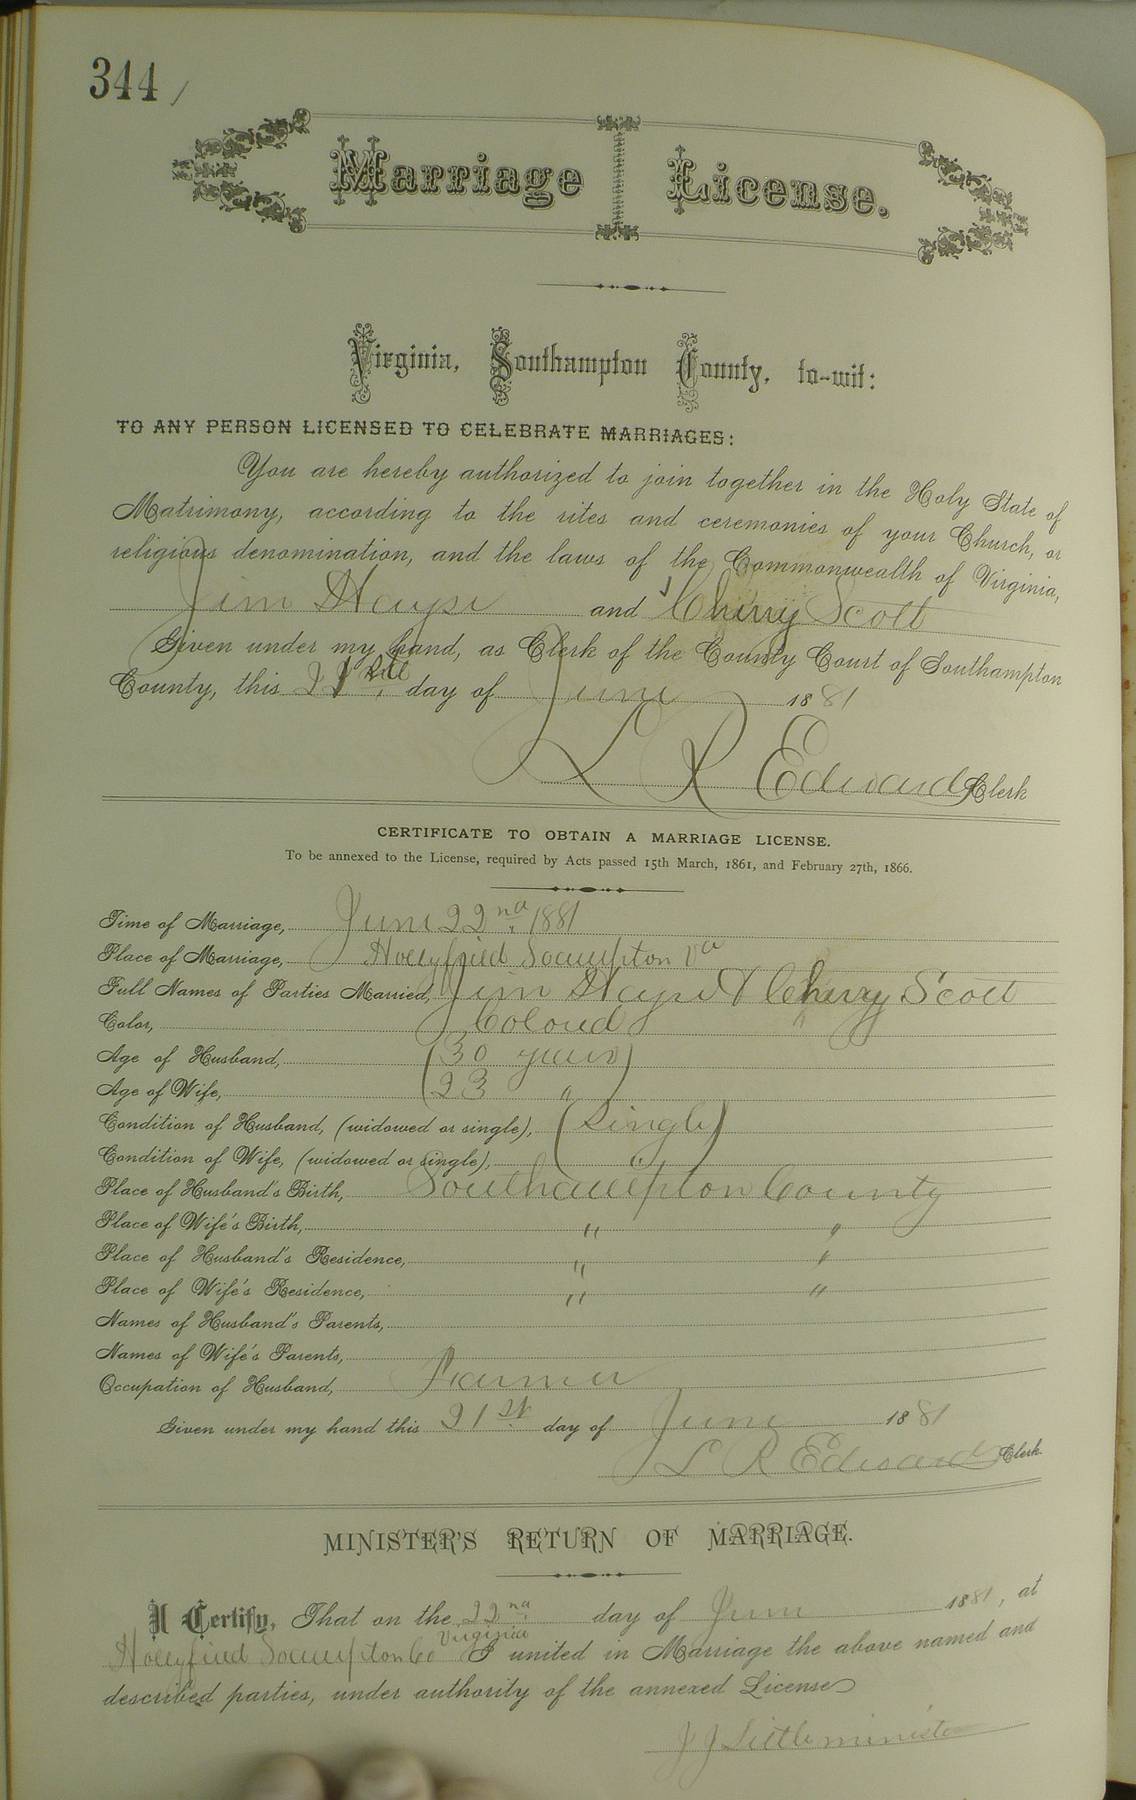 344
Marriage License.
Virginia, Southampton County, to-wit:
TO ANY PERSON LICENSED TO CELEBRATE MARRIAGES:
You are hereby authorized to join together in the Holy State of
Matrimony, according to the rites and ceremonies of your Church, or
religious denomination, and the laws of the Commonwealth of Virginia,
Jim Hayse and Cherry Scott
Given under my hand, as Clerk of the County Court of Southampton
County, this day of June 1881
L R Edwards Clerk
CERTIFICATE TO OBTAIN A MARRIAGE LICENSE.
To be annexed to the License, required by Acts passed 15th March, 1861, and February 27th, 1866.
Time of Marriage, June 22nd 1881
Place of Marriage, Hollyfield Southampton Va
Full Names of Parties Married, Jim Hayse & Cherry Scott
Color, Colored
Age of Husband, 30 years
Age of Wife, 23 "
Condition of Husband, (widowed or single), (Single)
Condition of Wife, (widowed or single), "
Place of Husband's Birth, Southampton County
Place of Wife's Birth, " "
Place of Husband's Residence, " "
Place of Wife's Residence, " "
Names of Husband's Parents,
Names of Wife's Parents,
Occupation of Husband, Farmer
Given under my hand this 21st day of June 1881
L R Edwards Clerk.
MINISTER'S RETURN OF MARRIAGE.
I Certify, That on the 22nd day of June 1881, at
Hollyfield Southampton Co Virginia I united in Marriage the above named and
described parties, under authority of the annexed License
J J Little minister